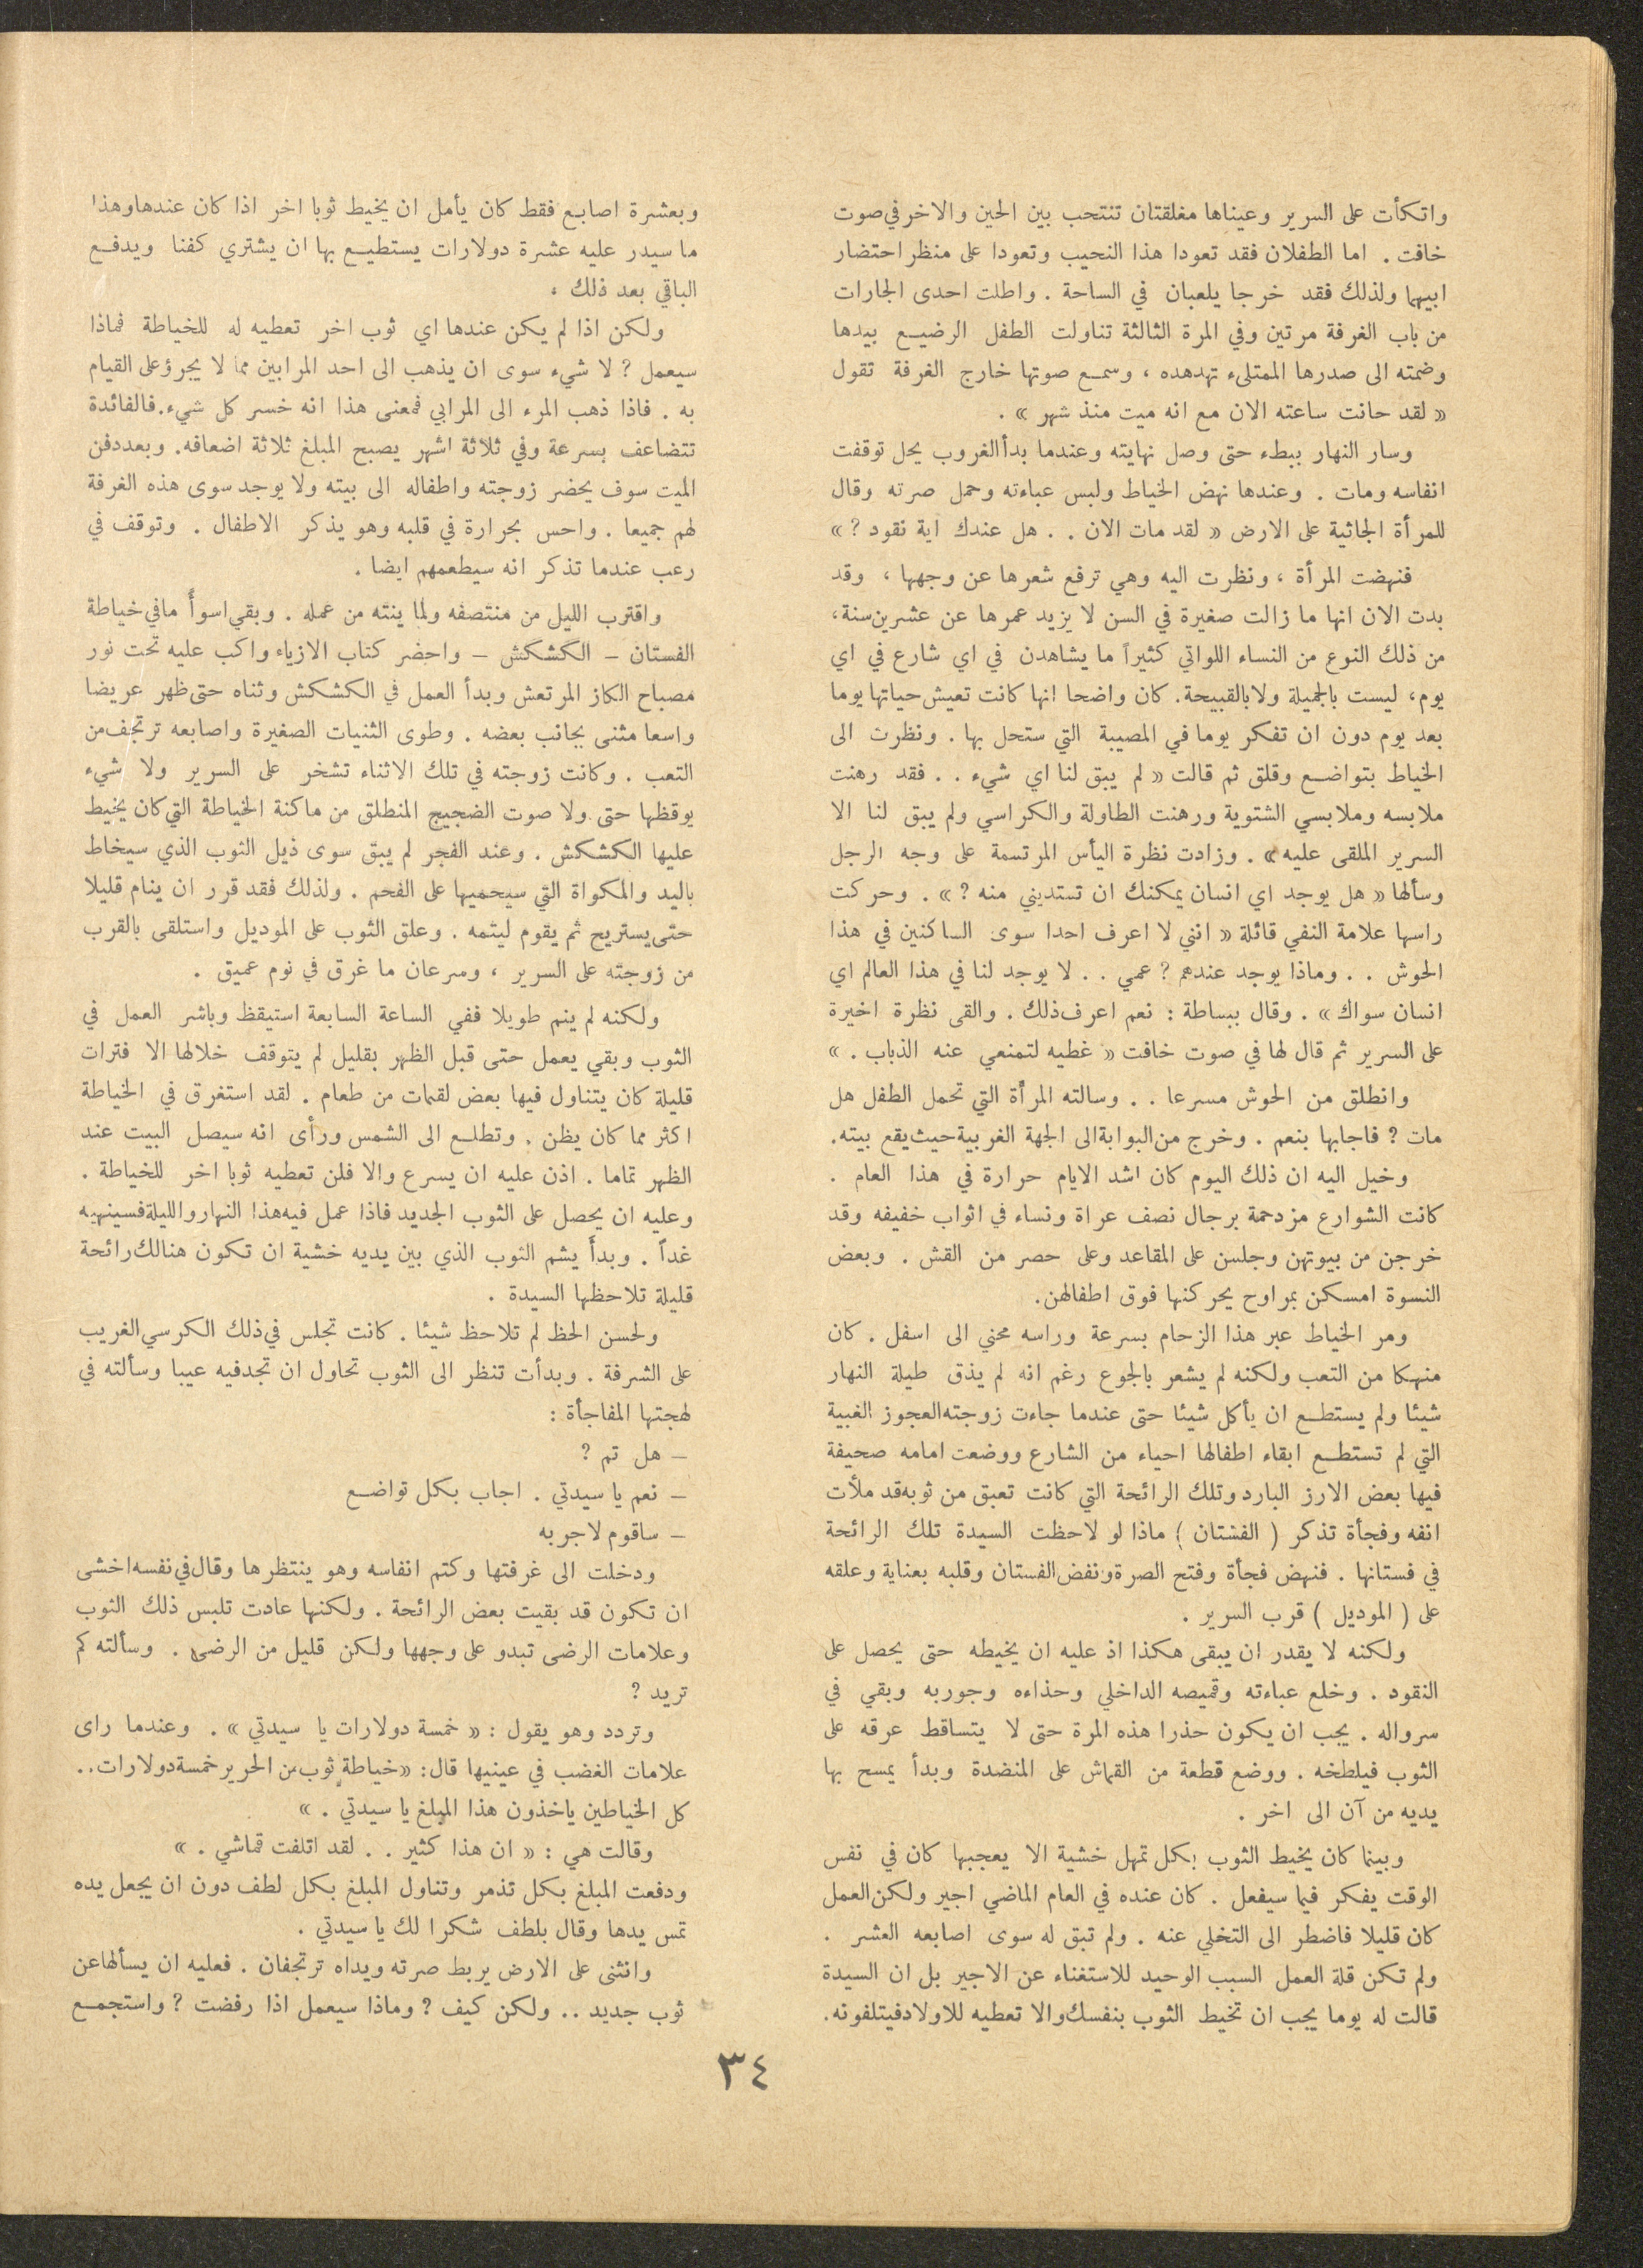 واتكأت على السرير وعيناها مغلقتان تنتحب بين الحين والاخر في صوت
خافت . اما الطفلان فقد تعودا هذا النحيب وتعودا على منظر احتضار
ابيهما ولذلك فقد خرجا يلعبان في الساحة . واطلت احدى الجارات
من باب الغرفة مرتين وفي المرة الثالثة تناولت الطفل الرضيع بيدها
وضمته الى صدرها الممتلىء تهدهده ، وسمع صوتها خارج الغرفة تقول
« لقد حانت ساعته الان مع انه ميت منذ شهر » .
وسار النهار ببطء حتى وصل نهايته وعندما بدأ الغروب يحل توقفت
انفاسه ومات . وعندها نهض الخياط ولبس عباءته وحمل صرته وقال
للمرأة الجاثية على الارض « لقد مات الان . . هل عندك اية نقود ? »
فنهضت المرأة ، ونظرت اليه وهي ترفع شعرها عن وجهها ، وقد
بدت الان انها ما زالت صغيرة في السن لا يزيد عمرها عن عشرين سنة،
من ذلك النوع من النساء اللواتي كثيراً ما يشاهدن في اي شارع في اي
يوم، ليست بالجميلة ولا بالقبيحة. كان واضحا انها كانت تعيش حياتها يوما
بعد يوم دون ان تفكر يوما في المصيبة التي ستحل بها . ونظرت الى
الخياط بتواضع وقلق ثم قالت « لم يبق لنا اي شيء . . فقد رهنت
ملابسه وملابسي الشتوية ورهنت الطاولة والكراسي ولم يبق لنا الا
السرير الملقى عليه » . وزادت نظرة اليأس المرتسمة على وجه الرجل
وسألها « هل يوجد اي انسان يمكنك ان تستديني منه ? » . وحركت
راسها علامة النفي قائلة « انني لا اعرف احدا سوى الساكنين في هذا
الحوش . . وماذا يوجد عندهم ? عمي . . لا يوجد لنا في هذا العالم اي
انسان سواك » . وقال ببساطة : نعم اعرف ذلك . والقى نظرة اخيرة
على السرير ثم قال لها في صوت خافت « غطيه لتمنعي عنه الذباب . »
وانطلق من الحوش مسرعا . . وسالته المرأة التي تحمل الطفل هل
مات ? فاجابها بنعم . وخرج من البوابة الى الجهة الغربية حيث يقع بيته.
وخيل اليه ان ذلك اليوم كان اشد الايام حرارة في هذا العام .
كانت الشوارع مزدحمة برجال نصف عراة ونساء في اثواب خفيفه وقد
خرجن من بيوتهن وجلسن على المقاعد وعلى حصر من القش . وبعض
النسوة امسكن بمراوح يحركنها فوق اطفالهن.
ومر الخياط عبر هذا الزحام بسرعة وراسه محني الى اسفل . كان
منهكا من التعب ولكنه لم يشعر بالجوع رغم انه لم يذق طيلة النهار
شيئا ولم يستطع ان يأكل شيئا حتى عندما جاءت زوجته العجوز الغبية
التي لم تستطع ابقاء اطفالها احياء من الشارع ووضعت امامه صحيفة
فيها بعض الارز البارد وتلك الرائحة التي كانت تعبق من ثوبه قد ملأت
انفه وفجأة تذكر ( الفستان ) ماذا لو لاحظت السيدة تلك الرائحة
في فستانها . فنهض فجأة وفتح الصرة ونفض الفستان وقلبه بعناية وعلقه
على ( الموديل ) قرب السرير .
ولكنه لا يقدر ان يبقى هكذا اذ عليه ان يخيطه حتى يحصل على
النقود . وخلع عباءته وقميصه الداخلي وحذاءه وجوربه وبقي في
سرواله . يجب ان يكون حذرا هذه المرة حتى لا يتساقط عرقه على
الثوب فيلطخه . ووضع قطعة من القماش على المنضدة وبدأ يمسح بها
يديه من آن الى اخر .
وبينما كان يخيط الثوب بكل تمهل خشية الا يعجبها كان في نفس
الوقت يفكر فيما سيفعل . كان عنده في العام الماضي اجير ولكن العمل
كان قليلا فاضطر الى التخلي عنه . ولم تبق له سوى اصابعه العشر .
ولم تكن قلة العمل السبب الوحيد للاستغناء عن الاجير بل ان السيدة
قالت له يوما يجب ان تخيط الثوب بنفسك والا تعطيه للاولاد فيتلفونه.
وبعشرة اصابع فقط كان يأمل ان يخيط ثوبا اخر اذا كان عندها وهذا
ما سيدر عليه عشرة دولارات يستطيع بها ان يشتري كفنا ويدفع
الباقي بعد ذلك .
ولكن اذا لم يكن عندها اي ثوب اخر تعطيه له للخياطة فماذا
سيعمل ? لا شيء سوى ان يذهب الى احد المرابين مما لا يجرؤ على القيام
به . فاذا ذهب المرء الى المرابي فمعنى هذا انه خسر كل شيء. فالفائدة
تتضاعف بسرعة وفي ثلاثة اشهر يصبح المبلغ ثلاثة اضعافه. وبعد دفن
الميت سوف يحضر زوجته واطفاله الى بيته ولا يوجد سوى هذه الغرفة
لهم جميعا . واحس بحرارة في قلبه وهو يذكر الاطفال . وتوقف في
رعب عندما تذكر انه سيطعمهم ايضا .
واقترب الليل من منتصفه ولما ينته من عمله . وبقي اسوأ ما في خياطة
الفستان – الكشكش – واحضر كتاب الازياء واكب عليه تحت نور
مصباح الكاز المرتعش وبدأ العمل في الكشكش وثناه حتى ظهر عريضا
واسعا مثنى بجانب بعضه . وطوى الثنيات الصغيرة واصابعه ترتجف من
التعب . وكانت زوجته في تلك الاثناء تشخر على السرير ولا شيء
يوقظها حتى ولا صوت الضجيج المنطلق من ماكنة الخياطة التي كان يخيط
عليها الكشكش . وعند الفجر لم يبق سوى ذيل الثوب الذي سيخاط
باليد والمكواة التي سيحميها على الفحم . ولذلك فقد قرر ان ينام قليلا
حتى يستريح ثم يقوم ليتمه . وعلق الثوب على الموديل واستلقى بالقرب
من زوجته على السرير ، وسرعان ما غرق في نوم عميق .
ولكنه لم ينم طويلا ففي الساعة السابعة استيقظ وباشر العمل في
الثوب وبقي يعمل حتى قبل الظهر بقليل لم يتوقف خلالها الا فترات
قليلة كان يتناول فيها بعض لقمات من طعام . لقد استغرق في الخياطة
اكثر مما كان يظن . وتطلع الى الشمس ورأى انه سيصل البيت عند
الظهر تماما . اذن عليه ان يسرع والا فلن تعطيه ثوبا اخر للخياطة .
وعليه ان يحصل على الثوب الجديد فاذا عمل فيه هذا النهار والليلة فسينهيه
غداً . وبدأ يشم الثوب الذي بين يديه خشية ان تكون هنالك رائحة
قليلة تلاحظها السيدة .
ولحسن الحظ لم تلاحظ شيئا . كانت تجلس في ذلك الكرسي الغريب
على الشرفة . وبدأت تنظر الى الثوب تحاول ان تجد فيه عيبا وسألته في
لهجتها المفاجأة :
– هل تم ?
– نعم يا سيدتي . اجاب بكل تواضع
– ساقوم لاجربه
ودخلت الى غرفتها وكتم انفاسه وهو ينتظرها وقال في نفسه اخشى
ان تكون قد بقيت بعض الرائحة . ولكنها عادت تلبس ذلك الثوب
وعلامات الرضى تبدو على وجهها ولكن قليل من الرضى . وسألته كم
تريد ?
وتردد وهو يقول : « خمسة دولارات يا سيدتي » . وعندما راى
علامات الغضب في عينيها قال: «خياطة ثوب من الحرير خمسة دولارات..
كل الخياطين ياخذون هذا المبلغ يا سيدتي . »
وقالت هي : « ان هذا كثير . . لقد اتلفت قماشي . »
ودفعت المبلغ بكل تذمر وتناول المبلغ بكل لطف دون ان يجعل يده
تمس يدها وقال بلطف شكرا لك يا سيدتي .
وانثنى على الارض يربط صرته ويداه ترتجفان . فعليه ان يسألها عن
ثوب جديد .. ولكن كيف ? وماذا سيعمل اذا رفضت ? واستجمع
٣٤